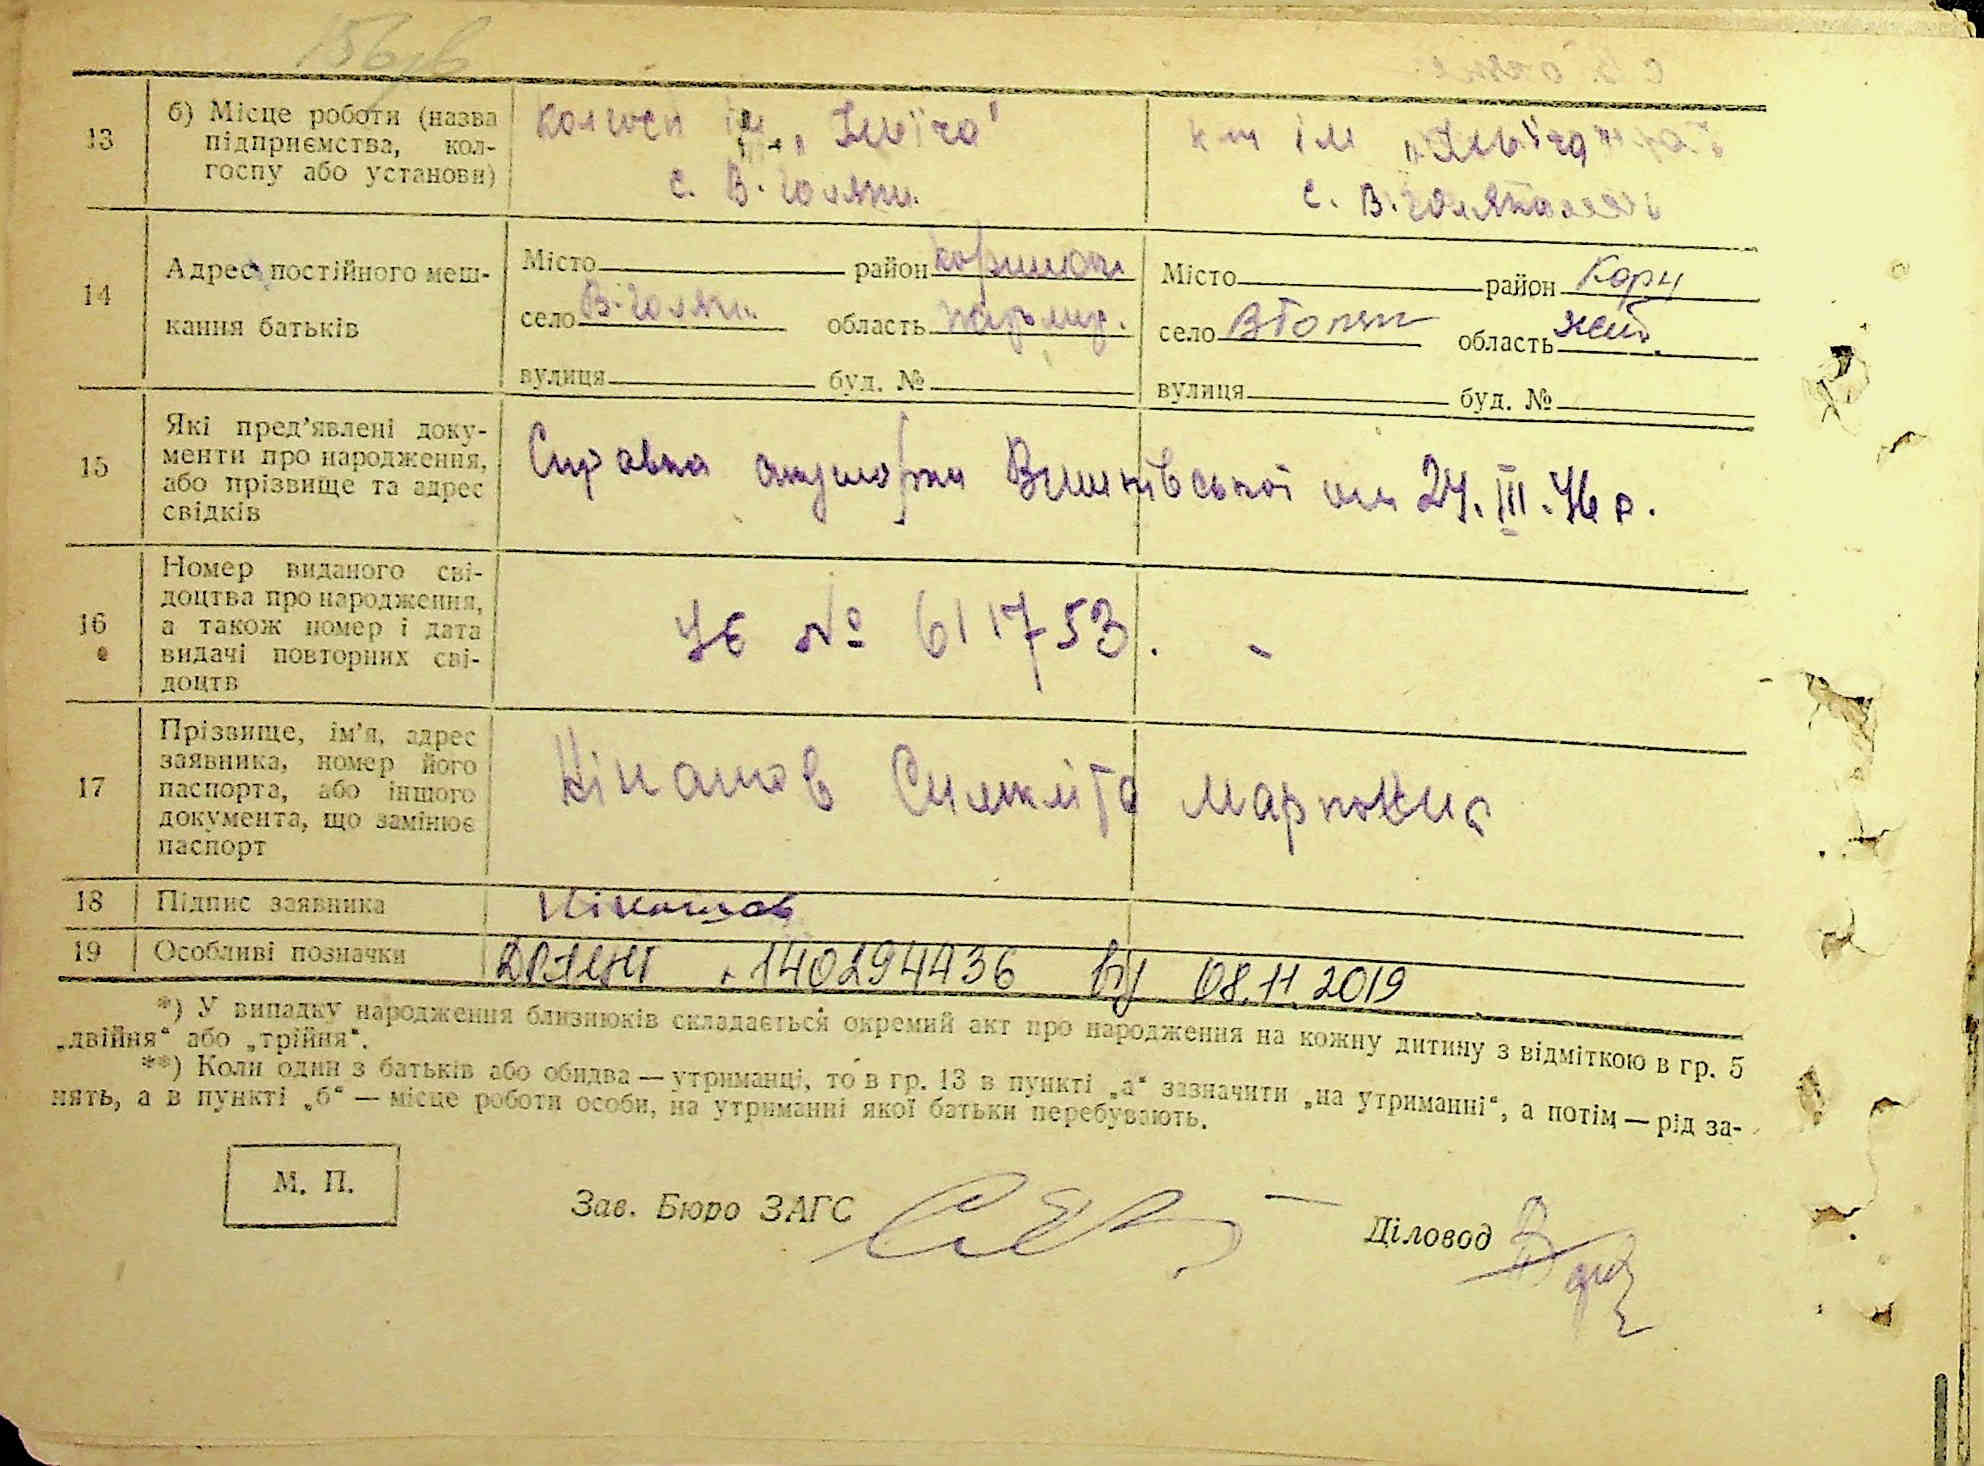 13 б) Місце роботи (назва підприємства, кол-
госпу або установи)
колгосп ім. „Ілліча"
с. В. Голяки.
к-п ім „Ілліча"
с. В. Голяки
14 Адрес постійного меш-
кання батьків
Місто район
село В-Голяки область
вулиця буд. №
Місто район Корн
село В Голяки область жит.
вулиця буд. №
15 Які пред'явлені доку-
менти про народження,
або прізвище та адрес
свідків
Справка акушерки від 24. III. 46 р.
16 Номер виданого сві-
доцтва про народження,
а також номер і дата
видачі повторних сві-
доцтв
УЄ № 611753.
17 Прізвище, ім'я, адрес
заявника, номер його
паспорта, або іншого
документа, що замінює
паспорт
Маркович
18 Підпис заявника
19 Особливі позначки
140294436 від 08.11.2019
*) У випадку народження близнюків складається окремий акт про народження на кожну дитину з відміткою в гр. 5
„двійня" або „трійня".
**) Коли один з батьків або обидва — утриманці, то в гр. 13 в пункті „а" зазначити „на утриманні", а потім — рід за-
нять, а в пункті „б" — місце роботи особи, на утриманні якої батьки перебувають.
М. П.
Зав. Бюро ЗАГС
Діловод